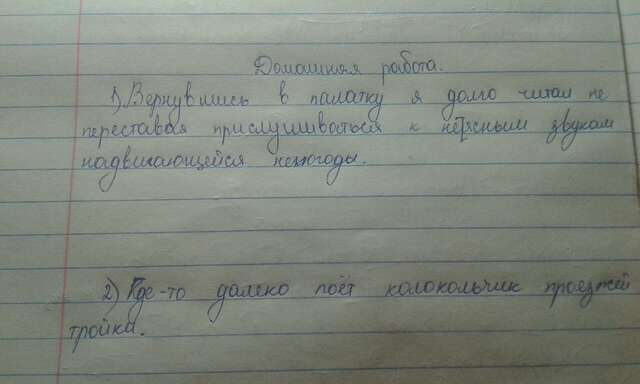 Домашняя работа.
1) Вернувшись в палатку я долго читал не
переставая прислушиваться к не ясным звукам
надвигающейся непогоды.
2) Где-то далеко поёт колокольчик проезжей
тройки.